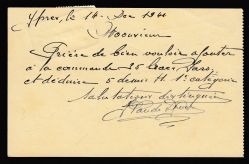 Ypres, le 14 Dec 1911
Monsieur
Prière de bien vouloir ajouter
à la commande 25
et déduire 5 demi H. 1e catégorie
Salutations distinguées